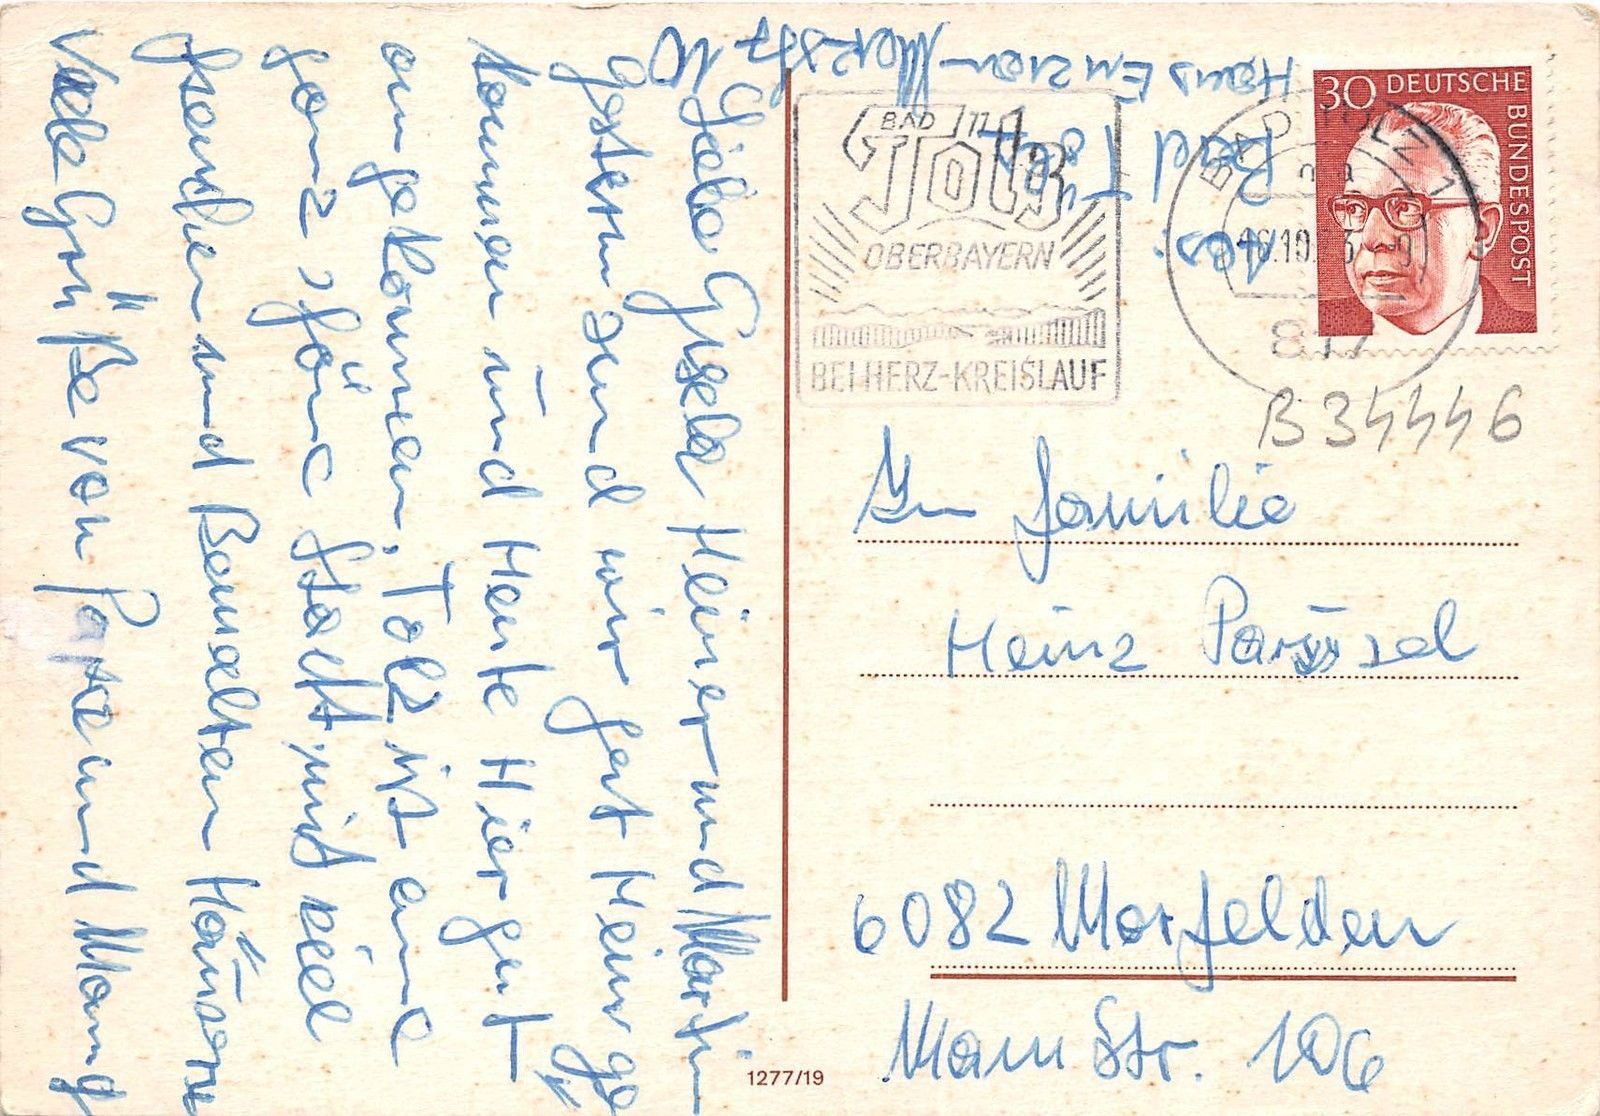 Liebe Gisela Heiner und Martin
Gestern sind wir gut Heim ge
kommen und Heute Hier gut
angekommen, Tölz ist eine
ganz schöne Stadt, mit viel
und Bemalten Häusern
Viele Grüße von Papa und Mama
Haus Enzian
Bad Tölz
BAD
Tölz
OBERBAYERN
BEI HERZ-KREISLAUF
BAD TÖLZ 1
16.10.
817
30 DEUTSCHE
BUNDESPOST
B 34446
An Familie
Heinz
6082 Morfelden
Str. 106
1277/19